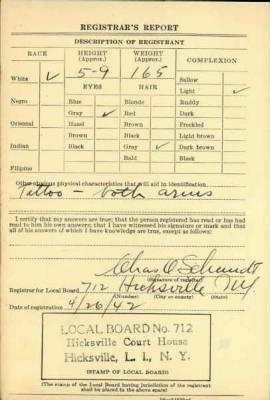 REGISTRAR'S REPORT
DESCRIPTION OF REGISTRANT
RACE HEIGHT (Approx.) WEIGHT (Approx.) COMPLEXION
White ✓ 5-9 165 Sallow
EYES HAIR Light ✓
Negro Blue Blonde Ruddy
Gray ✓ Red Dark
Oriental Hazel Brown Freckled
Brown Black Light brown
Indian Black Gray ✓ Dark brown
Bald Black
Filipino
Other obvious physical characteristics that will aid in identification
Tattoo - both arms
I certify that my answers are true; that the person registered has read or has had
read to him his own answers; that I have witnessed his signature or mark and that
all of his answers of which I have knowledge are true, except as follows:
Chas O Schmidt
(Signature of registrar)
Registrar for Local Board 712 Hicksville NY
(Number) (City or county) (State)
Date of registration 4/26/42
LOCAL BOARD No. 712
Hicksville Court House
Hicksville, L. I., N. Y.
(STAMP OF LOCAL BOARD)
(The stamp of the Local Board having jurisdiction of the registrant
shall be placed in the above space)